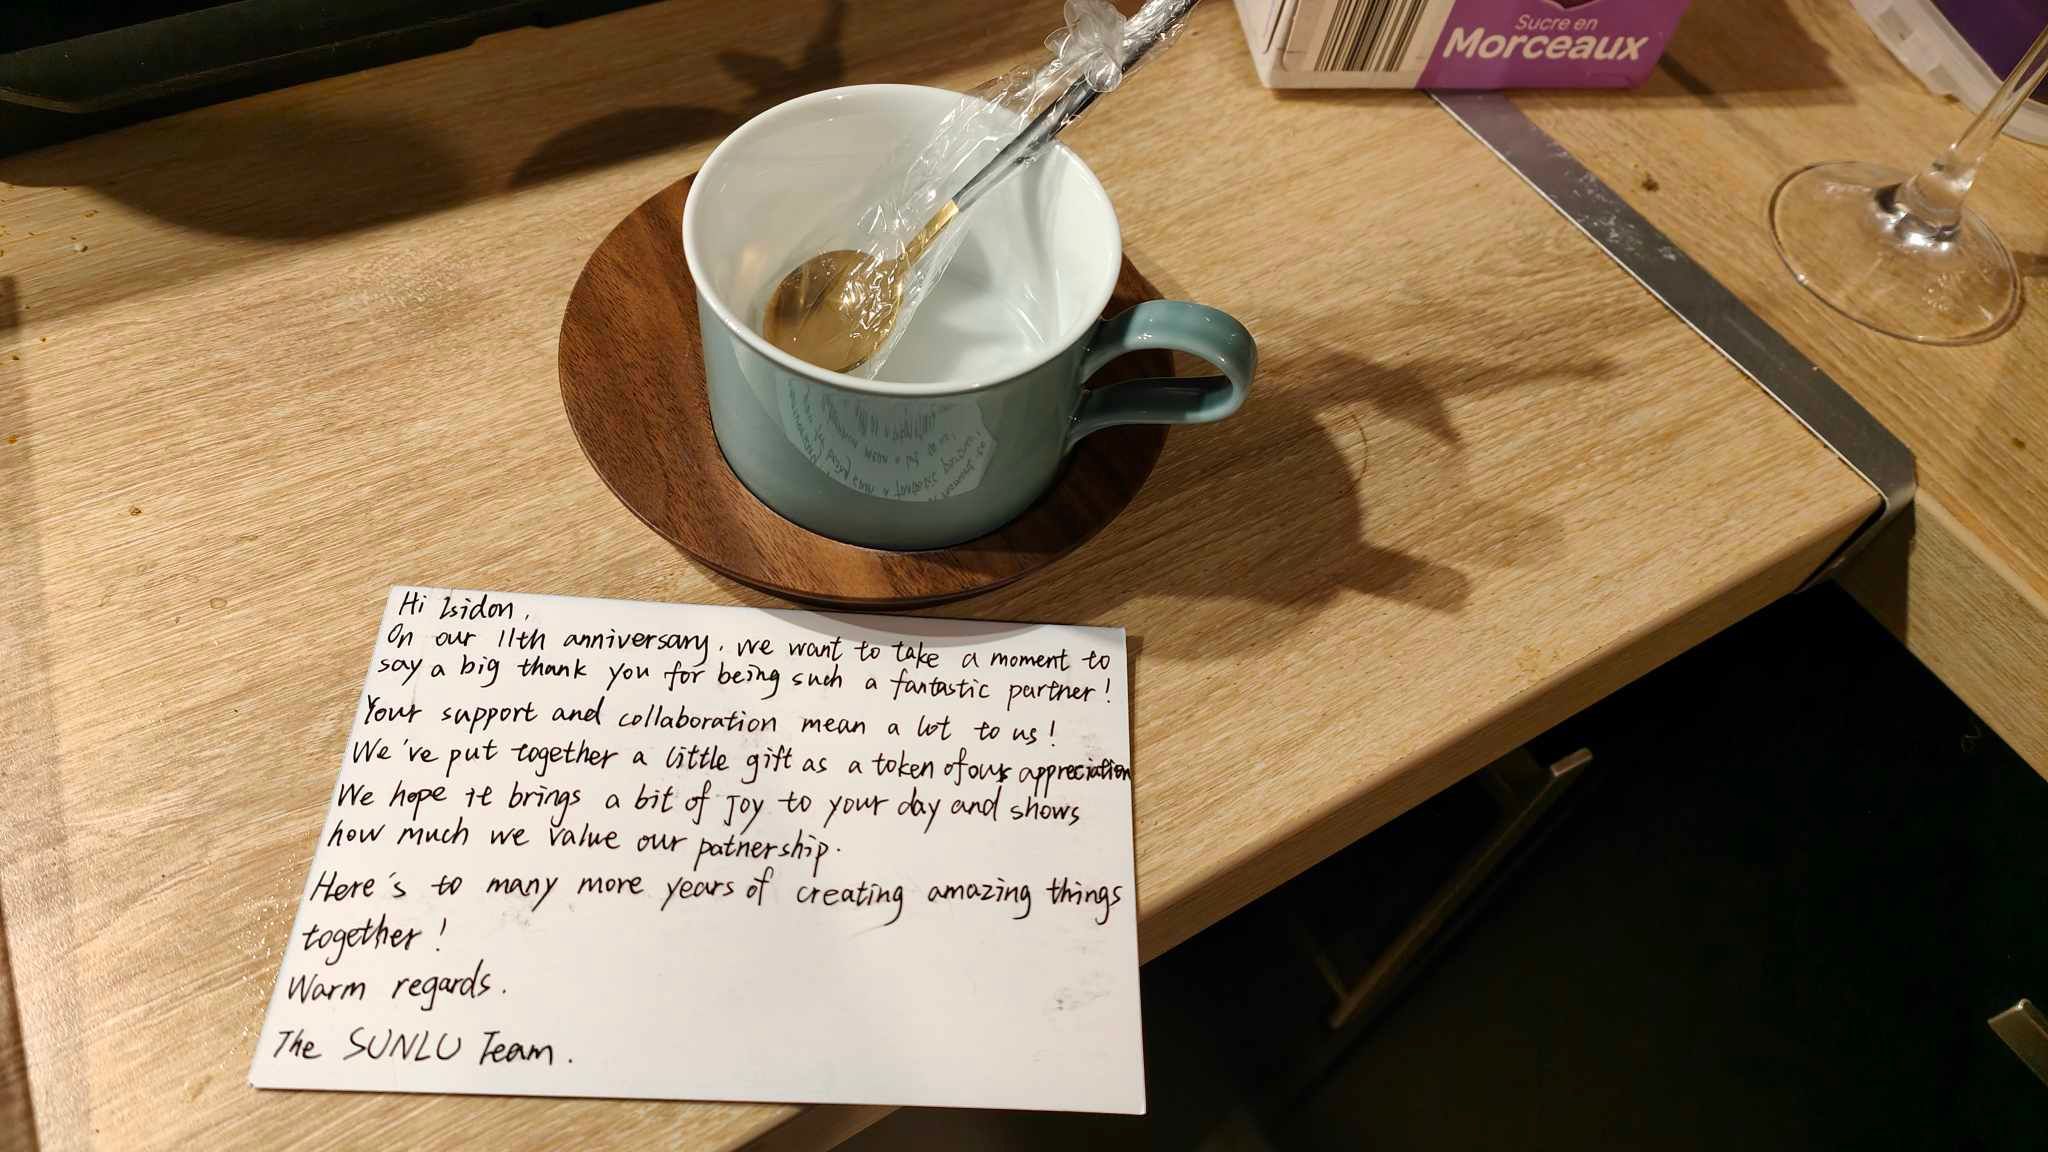 Sucre en
Morceaux
Hi Isidon,
On our 11th anniversary, we want to take a moment to
say a big thank you for being such a fantastic partner!
Your support and collaboration mean a lot to us!
We've put together a little gift as a token of our appreciation
We hope it brings a bit of joy to your day and shows
how much we value our patnership.
Here's to many more years of creating amazing things
together!
Warm regards.
The SUNLU Team.